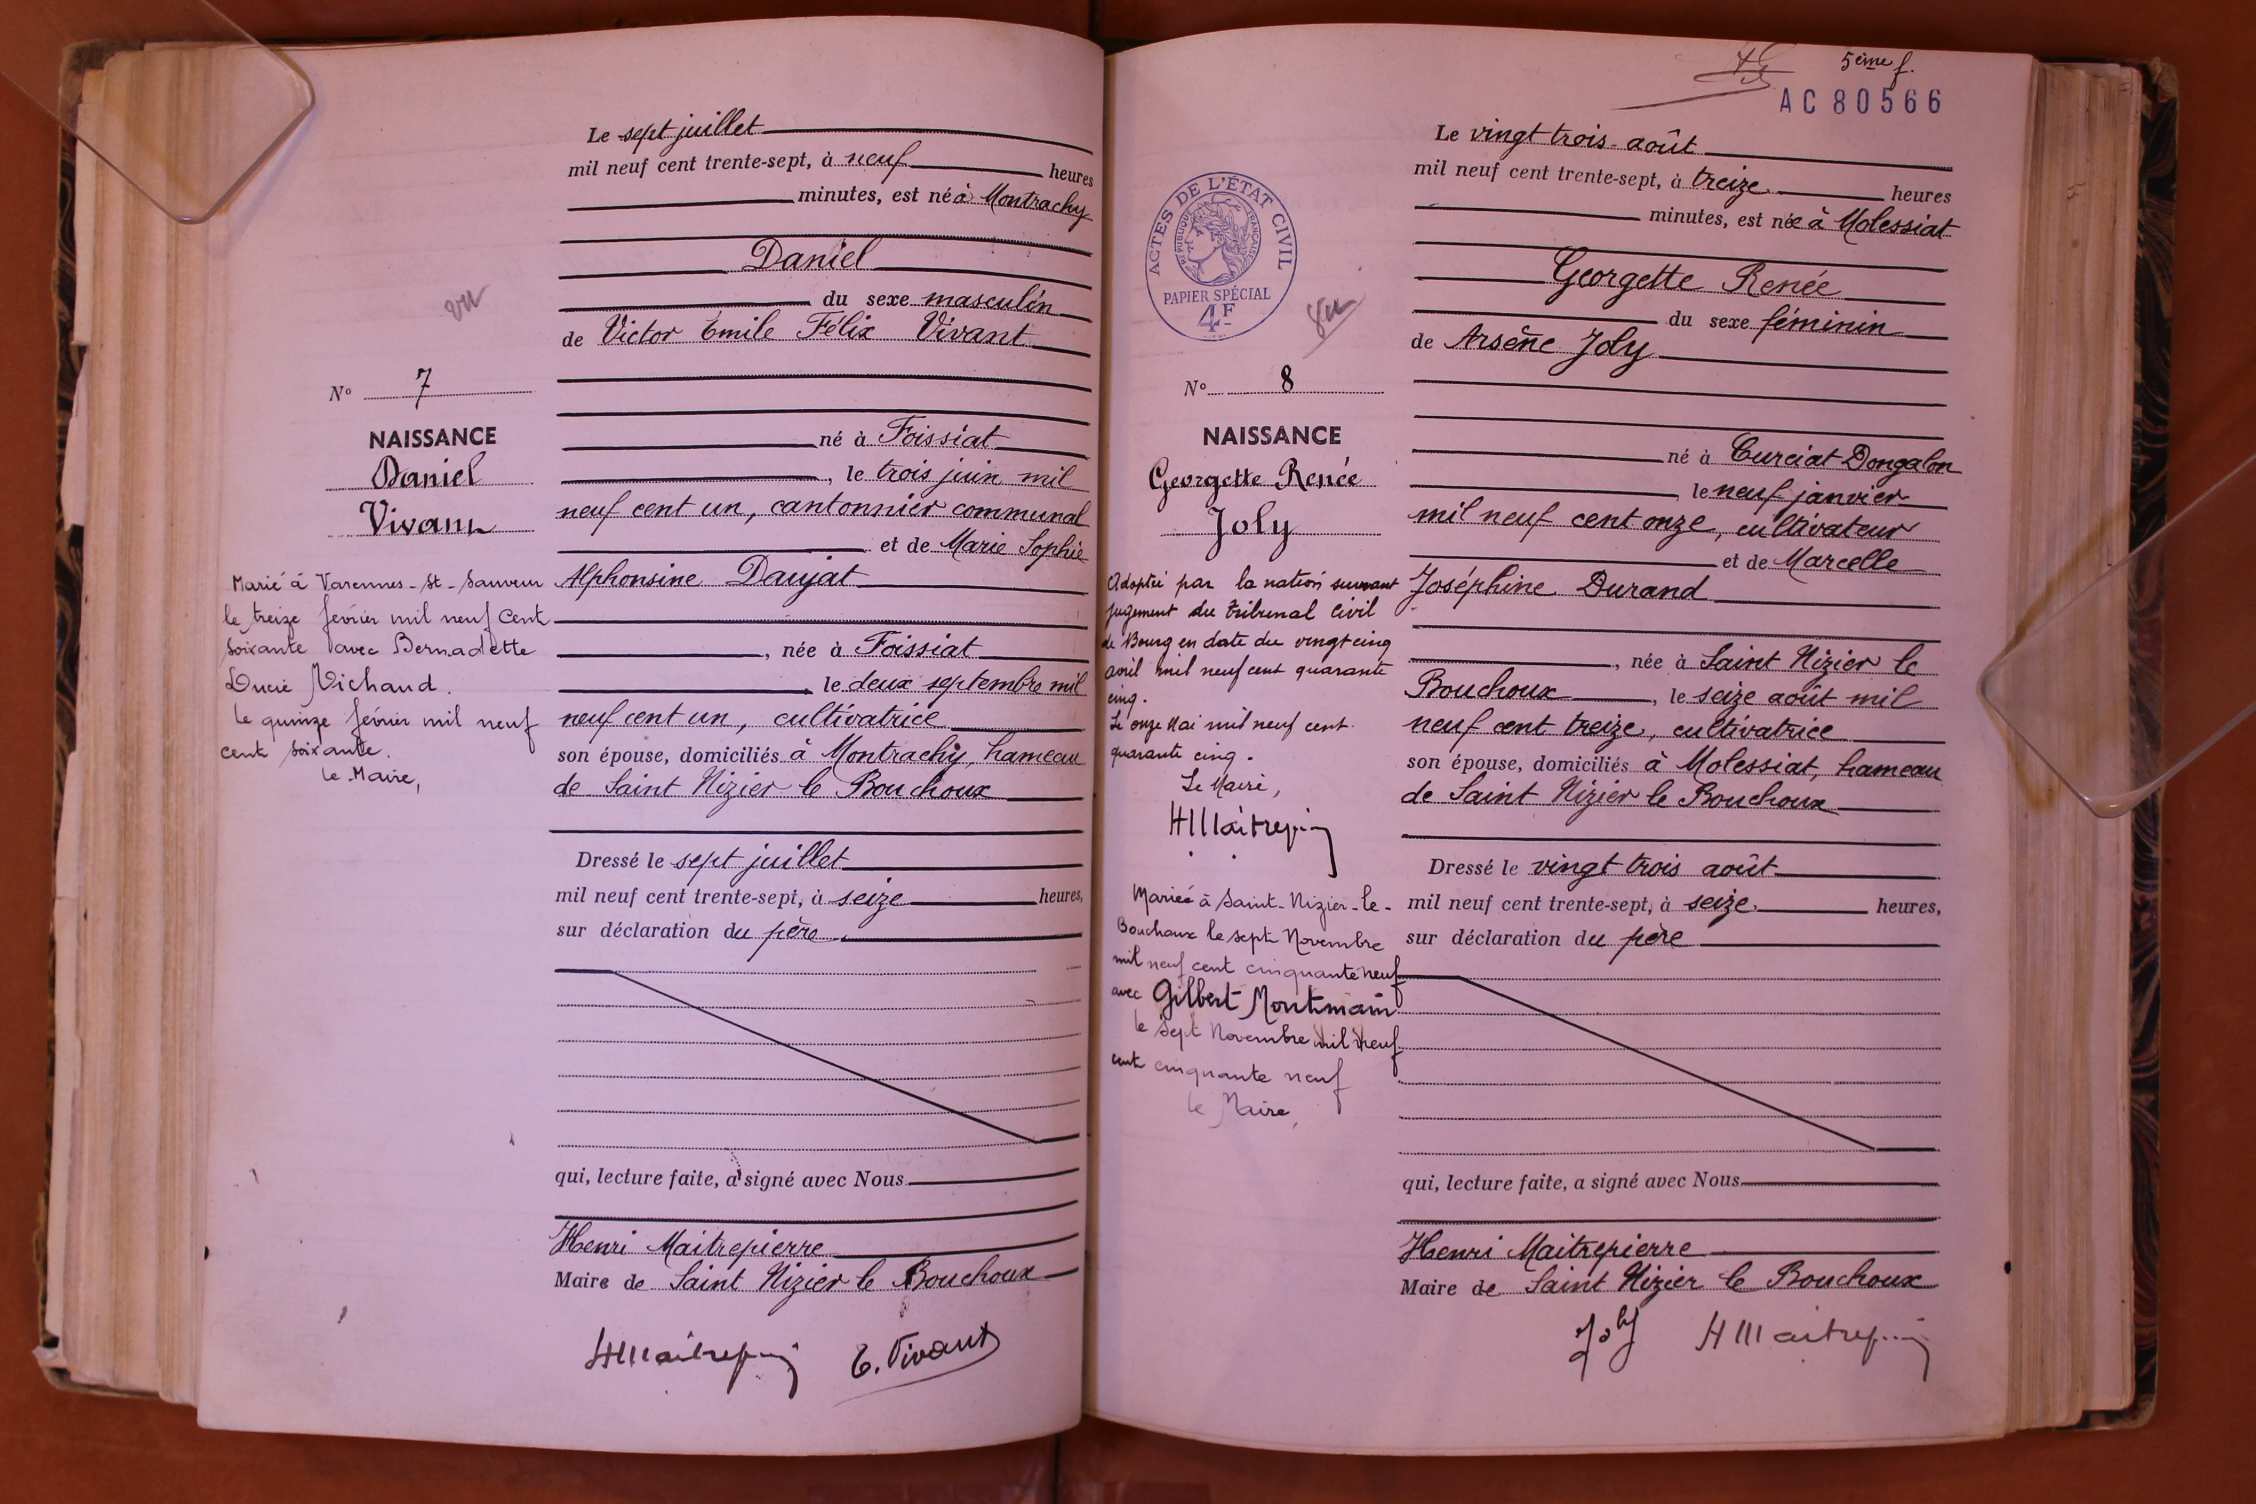 Le sept juillet
mil neuf cent trente-sept, à neuf heures
minutes, est né à Montrachy
Daniel
du sexe masculin
de Victor Emile Félix Vivant
né à Foissiat
, le trois juin mil
neuf cent un, cantonnier communal
et de Marie Sophie
Alphonsine Daujat
, née à Foissiat
, le deux septembre mil
neuf cent un, cultivatrice
son épouse, domiciliés à Montrachy, hameau
de Saint Nizier le Bouchoux
Dressé le sept juillet
mil neuf cent trente-sept, à seize heures,
sur déclaration du père
qui, lecture faite, a signé avec Nous
Henri Maitrepierre
Maire de Saint Nizier le Bouchoux
E. Vivant
vu
No 7
NAISSANCE
Daniel
Vivant
Marié à Varennes-St-Sauveur
le treize février mil neuf cent
soixante avec Bernadette
Lucie Michaud.
Le quinze février mil neuf
cent soixante.
Le Maire,
5ème f.
AC 80566
Le vingt trois août
mil neuf cent trente-sept, à treize heures
minutes, est née à Molessiat
Georgette Renée
du sexe féminin
de Arsène Joly
né à Curciat Dongalon
, le neuf janvier
mil neuf cent onze, cultivateur
et de Marcelle
Joséphine Durand
, née à Saint Nizier le
Bouchoux, le seize août mil
neuf cent treize, cultivatrice
son épouse, domiciliés à Molessiat, hameau
de Saint Nizier le Bouchoux
Dressé le vingt trois août
mil neuf cent trente-sept, à seize heures,
sur déclaration du père
qui, lecture faite, a signé avec Nous
Henri Maitrepierre
Maire de Saint Nizier le Bouchoux
Joly
ACTES DE L'ÉTAT CIVIL
RÉPUBLIQUE FRANÇAISE
PAPIER SPÉCIAL
4F
No 8
NAISSANCE
Georgette Renée
Joly
Adoptée par la nation suivant
jugement du tribunal Civil
de Bourg en date du vingt cinq
avril mil neuf cent quarante
cinq.
Le onze Mai mil neuf cent
quarante cinq.
Le Maire,
Mariée à Saint-Nizier-le-
Bouchoux le sept Novembre
mil neuf cent cinquante neuf
avec Gilbert Montmain
le sept Novembre mil neuf
cent cinquante neuf
le Maire,